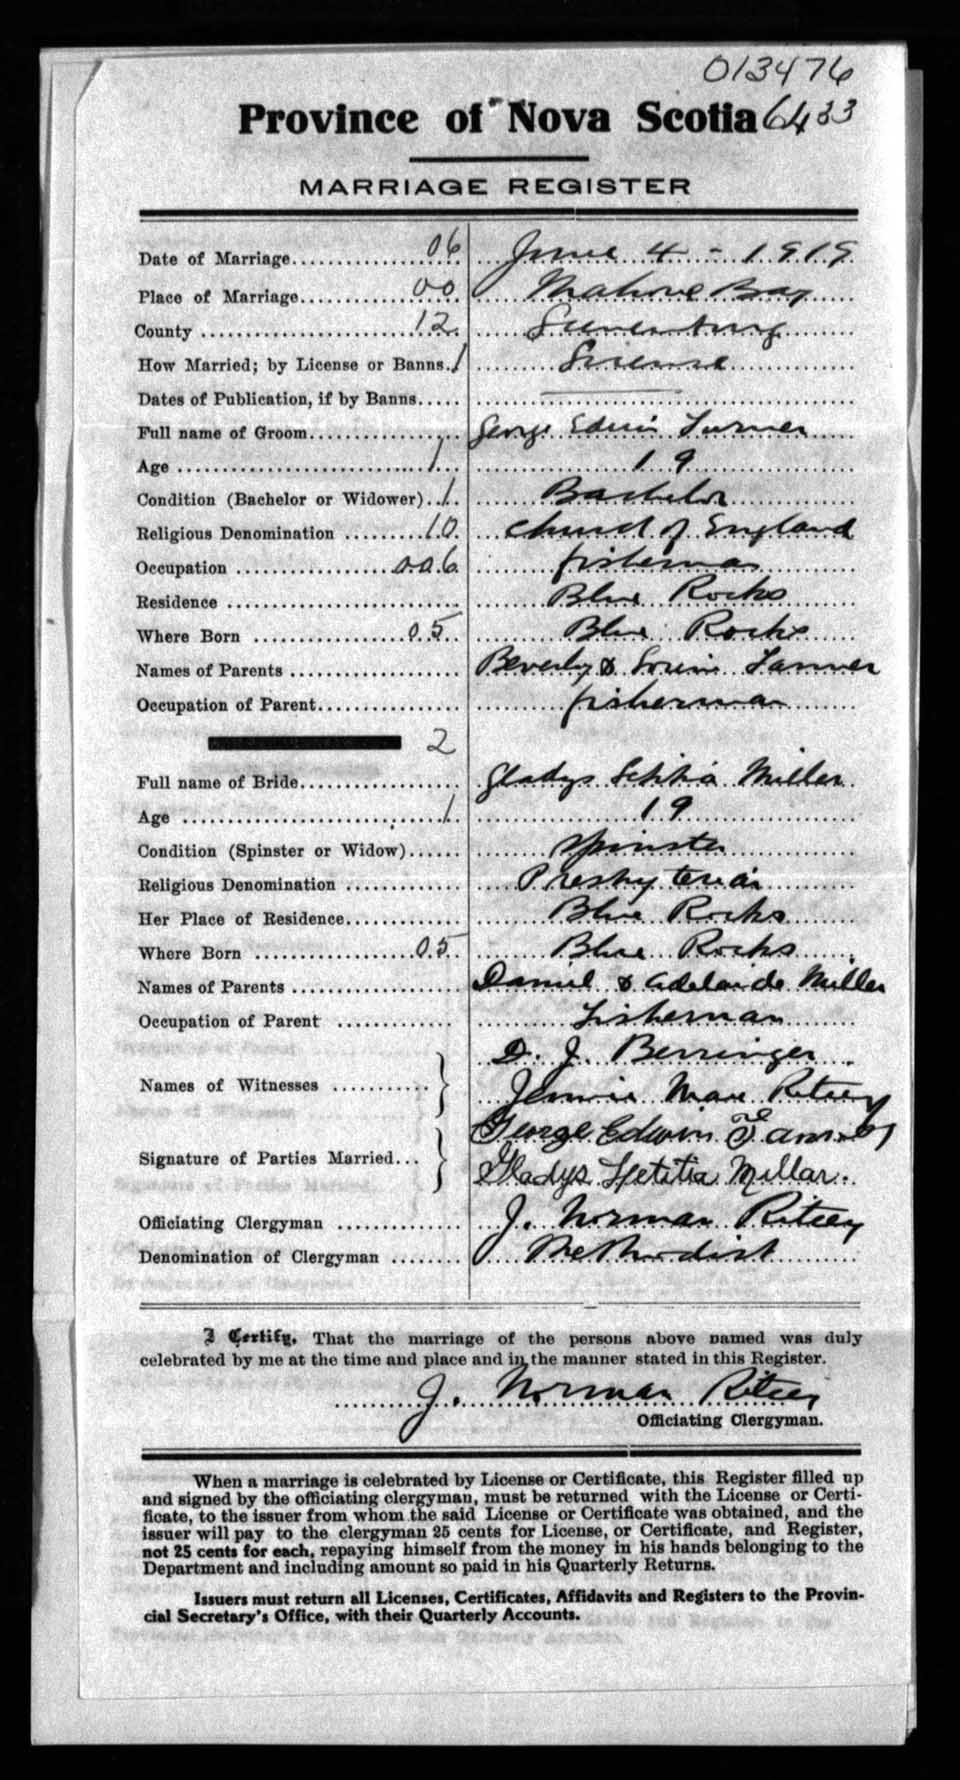 013476
Province of Nova Scotia 6433
MARRIAGE REGISTER
Date of Marriage 06 June 4 - 1919
Place of Marriage 00 Mahone Bay
County 12 Lunenburg
How Married; by License or Banns 1 License
Dates of Publication, if by Banns
Full name of Groom George Edwin Turner
Age 1 19
Condition (Bachelor or Widower) 1 Bachelor
Religious Denomination 10 Church of England
Occupation 006 fisherman
Residence Blue Rocks
Where Born 05 Blue Rocks
Names of Parents Beverly & Tanner
Occupation of Parent fisherman
2
Full name of Bride Gladys Letitia Miller
Age 1 19
Condition (Spinster or Widow) Spinster
Religious Denomination Presbyterian
Her Place of Residence Blue Rocks
Where Born 05 Blue Rocks
Names of Parents Daniel & Adelaide Miller
Occupation of Parent Fisherman
D. J. Berringer
Names of Witnesses
Jennie Mae Ritcey
George Edwin Tanner
Signature of Parties Married
Gladys Letitia Millar.
Officiating Clergyman J. Norman Ritcey
Denomination of Clergyman Methodist
I Certify, That the marriage of the persons above named was duly
celebrated by me at the time and place and in the manner stated in this Register.
J. Norman Ritcey
Officiating Clergyman.
When a marriage is celebrated by License or Certificate, this Register filled up
and signed by the officiating clergyman, must be returned with the License or Certi-
ficate, to the issuer from whom the said License or Certificate was obtained, and the
issuer will pay to the clergyman 25 cents for License, or Certificate, and Register,
not 25 cents for each, repaying himself from the money in his hands belonging to the
Department and including amount so paid in his Quarterly Returns.
Issuers must return all Licenses, Certificates, Affidavits and Registers to the Provin-
cial Secretary's Office, with their Quarterly Accounts.